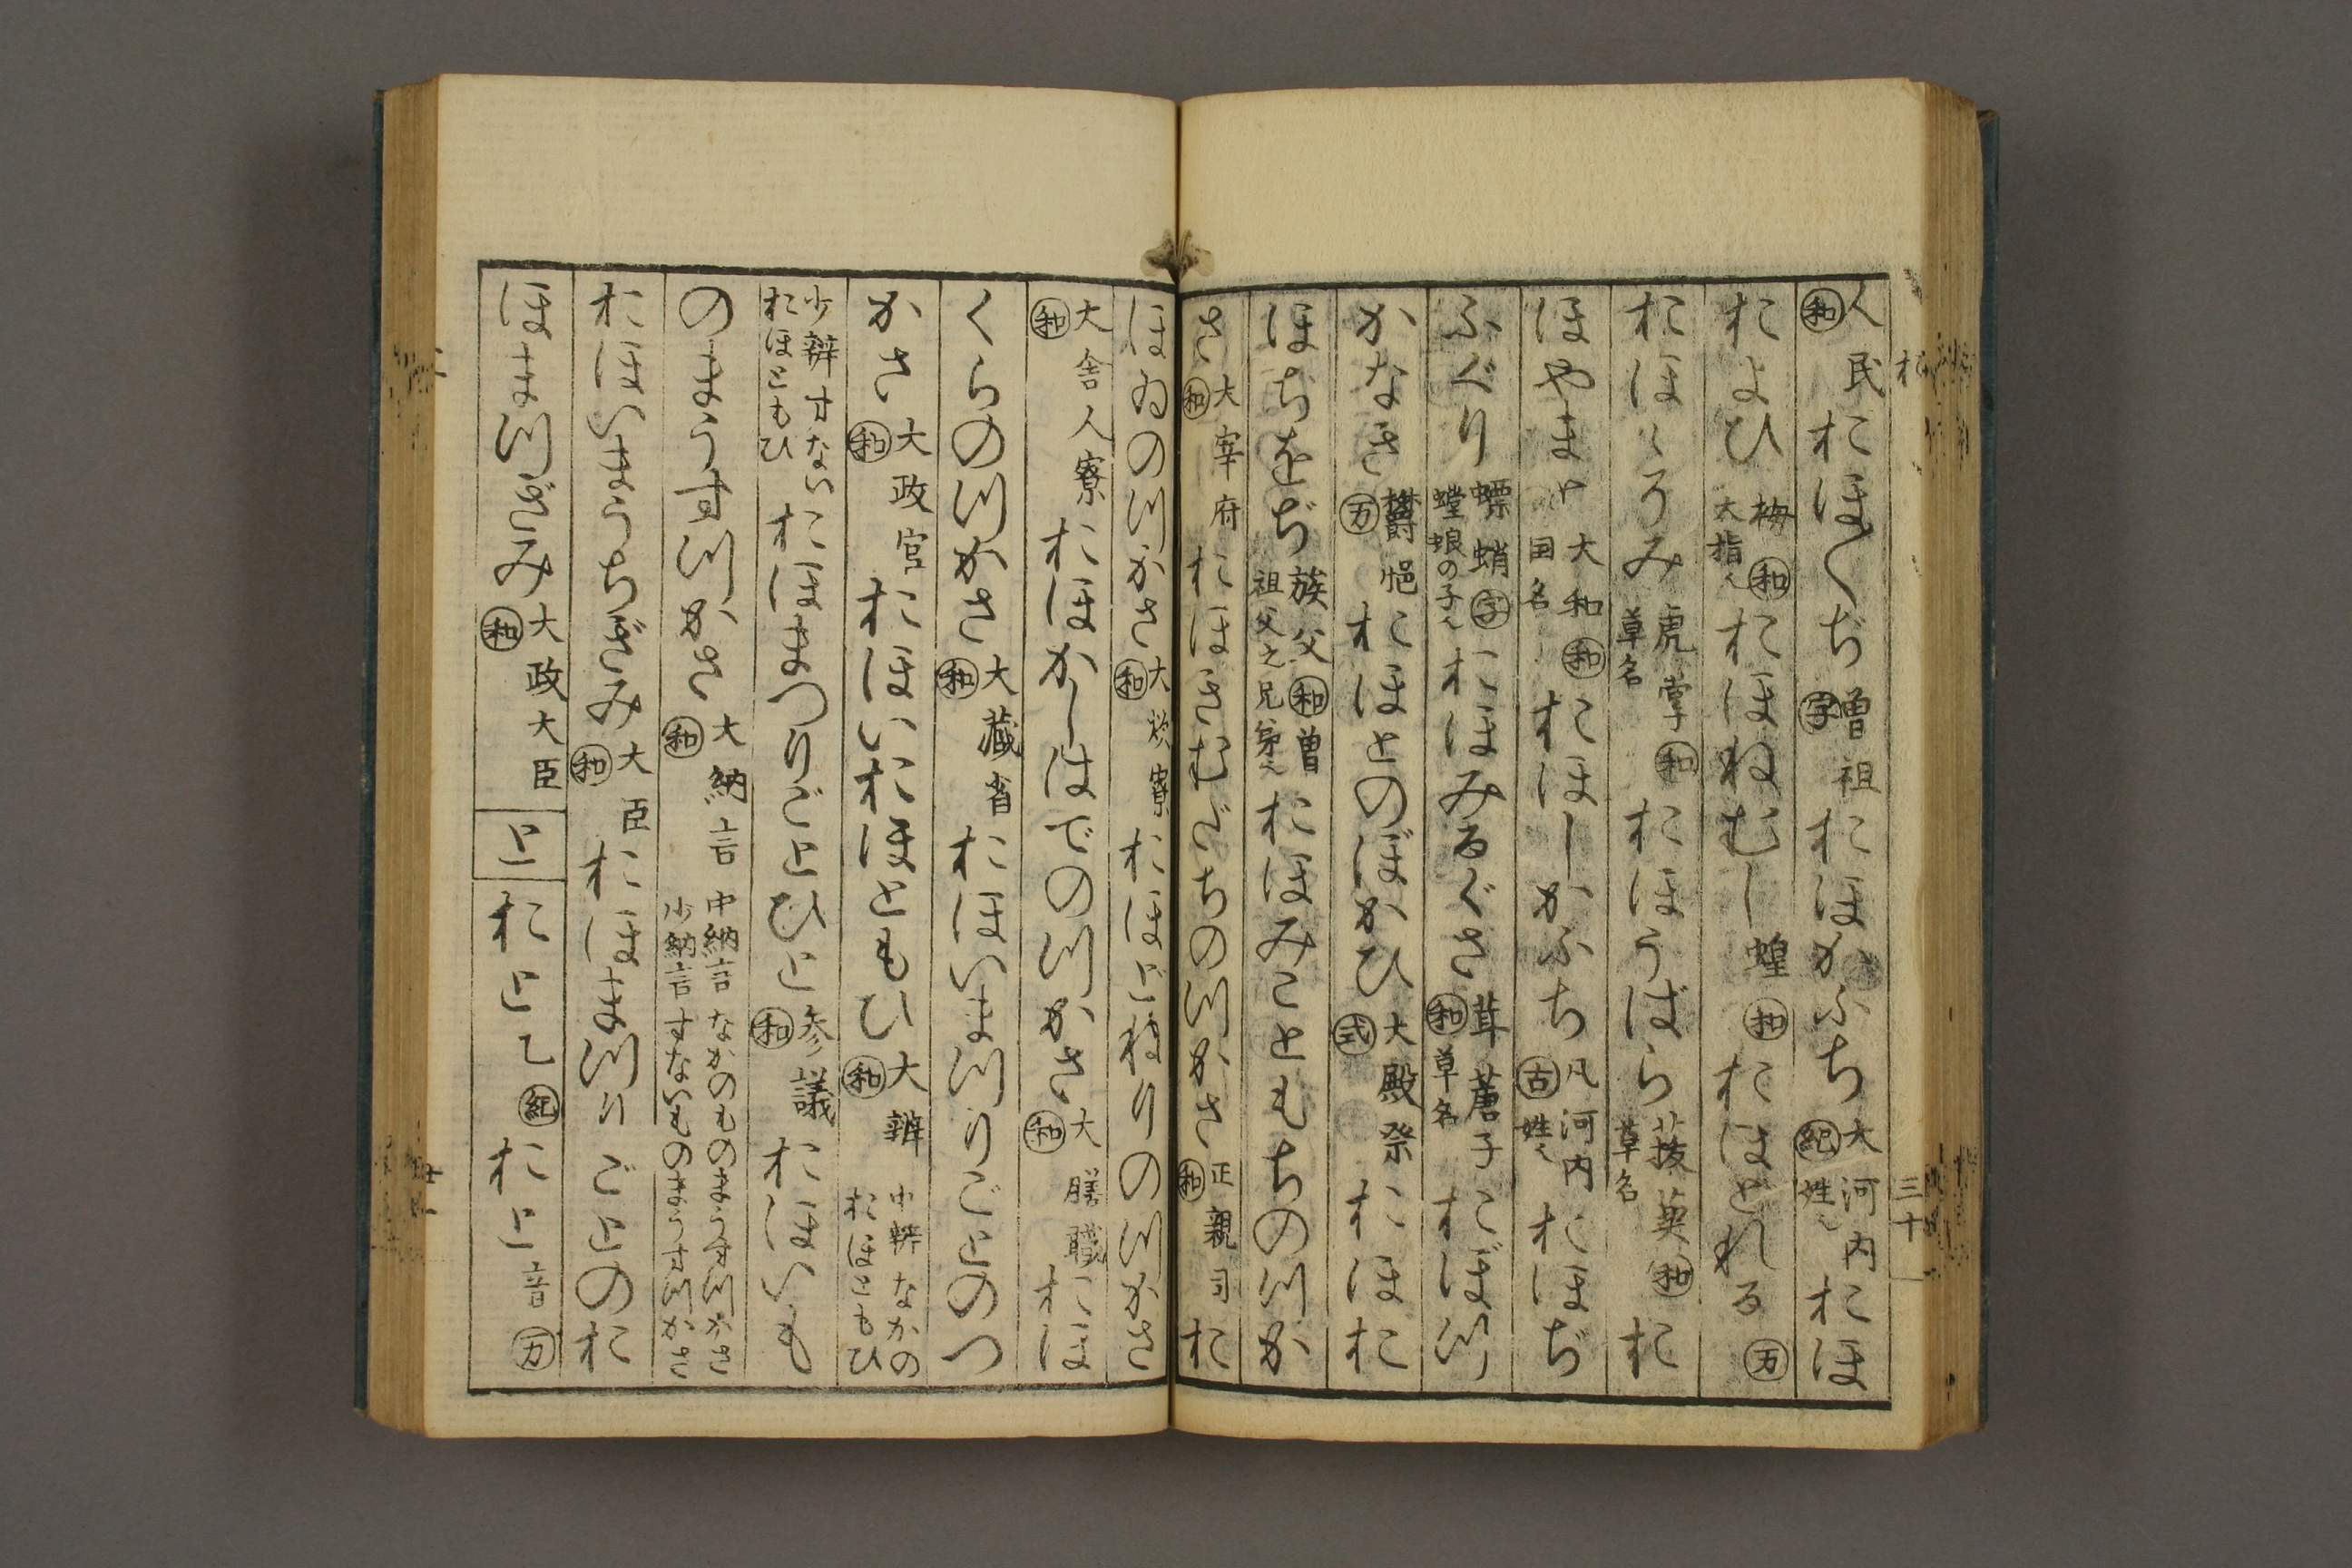 人民㊒和 おほ〱ぢ 曽祖 字 おほかふち 大河内 紀 姓也 おほ
およひ 拇 和 大指也 おほねむし 蝗 和 おほとれる 万
おほゝうみ 虎掌 和 草名 おほうばら 菝葜 和 草名 お
ほやまと 大和 和 国名 おほしかふち 凡河内 古 姓也 おほぢ
ふぐり 螵蛸 字 螳蜋の子也 おほみるぐさ 茛菪子 和 草名 おぼつ
かなき 万 欝悒 おほとのほかひ 大殿祭 式 おほお
ほぢをぢ 族父 和 曽祖父之兄弟也 おほみこともちのつか
さ 大宰府 和 おほきむだちのつかさ 正親司 和 お
ほゐのつかさ 大炊寮 和 おほとねりのつかさ
大舎人寮 和 おほかしはでのつかさ 大膳職 和 おほ
くらのつかさ 大蔵省 和 おほいまつりごとのつ
かさ 大政官 和 おほいおほともひ 大辨 和 中辨 なかのおほともひ
少辨 すないおほともひ おほまつりごとひと 参議 和 おほいも
のまうすつかさ 大納言 和 中納言 なかのものまうすつかさ 少納言 すないものまうすつかさ
おほいまうちぎみ 大臣 和 おほまつりごとのお
ほまつぎみ 大政大臣 和 と おとこ 紀 おと 音 万
お
三十